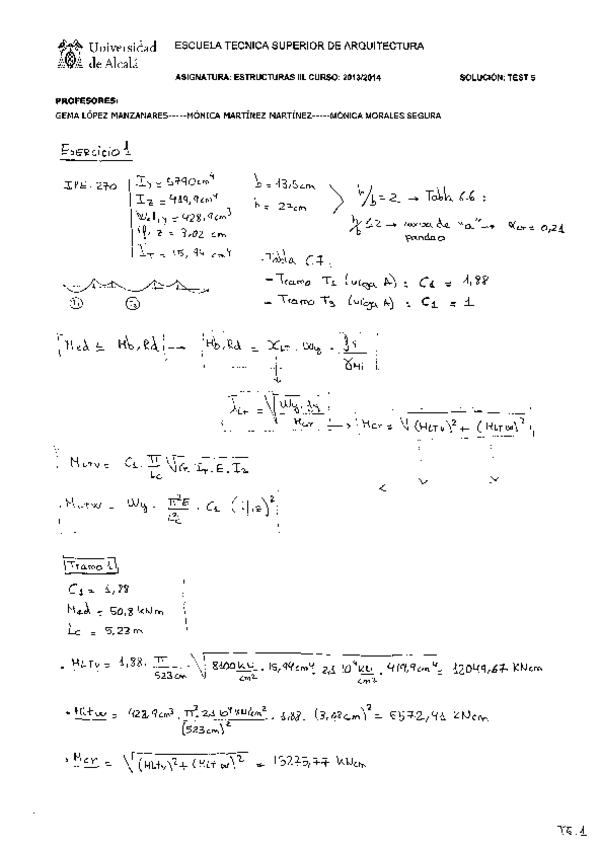 Universidad
de Alcalá
ESCUELA TECNICA SUPERIOR DE ARQUITECTURA
ASIGNATURA: ESTRUCTURAS III. CURSO: 2013/2014 SOLUCIÓN: TEST 5
PROFESORES:
GEMA LÓPEZ MANZANARES-----MÓNICA MARTÍNEZ MARTÍNEZ-----MÓNICA MORALES SEGURA
Ejercicio 1
IPE-270
Iy = 5790 cm⁴
Iz = 419,9 cm⁴
Wel,y = 428,9 cm³
if,z = 3,02 cm
IT = 15,94 cm⁴
b = 13,5cm
h = 27cm
h/b = 2 → Tabla 6.6 :
h/b ≤ 2 → curva de "a" → αLT = 0,21
pandeo
- Tabla 6.7 :
- Tramo T1 (viga A) : C1 = 1,88
- Tramo T3 (viga A) : C1 = 1
T1 T3
Med ≤ Mb,Rd → Mb,Rd = χLT · Wy · fy / γM1
λLT = √(Wy · fy / Mcr) → Mcr = √((MLTv)² + (MLTw)²)
MLTv = C1 · π/Lc √(G · IT · E · Iz)
MLTw = Wy · π²E/Lc² · C1 (if,z)²
Tramo 1
C1 = 1,88
Med = 50,8 kNm
Lc = 5,23 m
MLTv = 1,88 · π/523cm · √(8100 kN/cm² · 15,94cm⁴ · 2,1 · 10⁴ kN/cm² · 419,9cm⁴) = 12049,67 KNcm
MLTw = 428,9cm³ · π² · 2,1 · 10⁴ kN/cm² / (523cm)² · 1,88 · (3,02cm)² =
Mcr = √((MLTv)² + (MLTw)²) =
T5.1